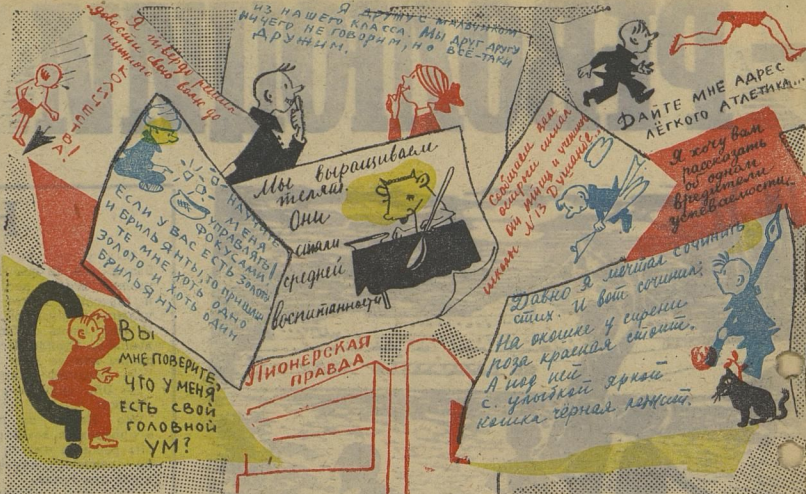 Я твердо решил
довести свою волю до
нужного
автоматизма!
Я дружу с мальчиком
из нашего класса. Мы друг другу
ничего не говорим, но всё-таки
дружим.
Дайте мне адрес
лёгкого атлетика...
Научите
меня
управлять
фокусами!
Если у вас есть золото
и брильянты, то пришли
те мне хоть одно
золото и хоть один
брильянт
Мы выращиваем
телят.
Они
стали
средней
воспитанности
Сообщаем вам
очередной сигнал
от птиц и ученика
школы № 13
Я хочу вам
рассказать
об одном
вредителе
успеваемости...
Давно я мечтал сочинить
стих. И вот сочинил:
На окошке у сирени
роза красная стоит.
А под ней
с улыбкой яркой
кошка чёрная лежит.
Вы
мне поверите,
что у меня
есть свой
головной
ум?
Пионерская
правда